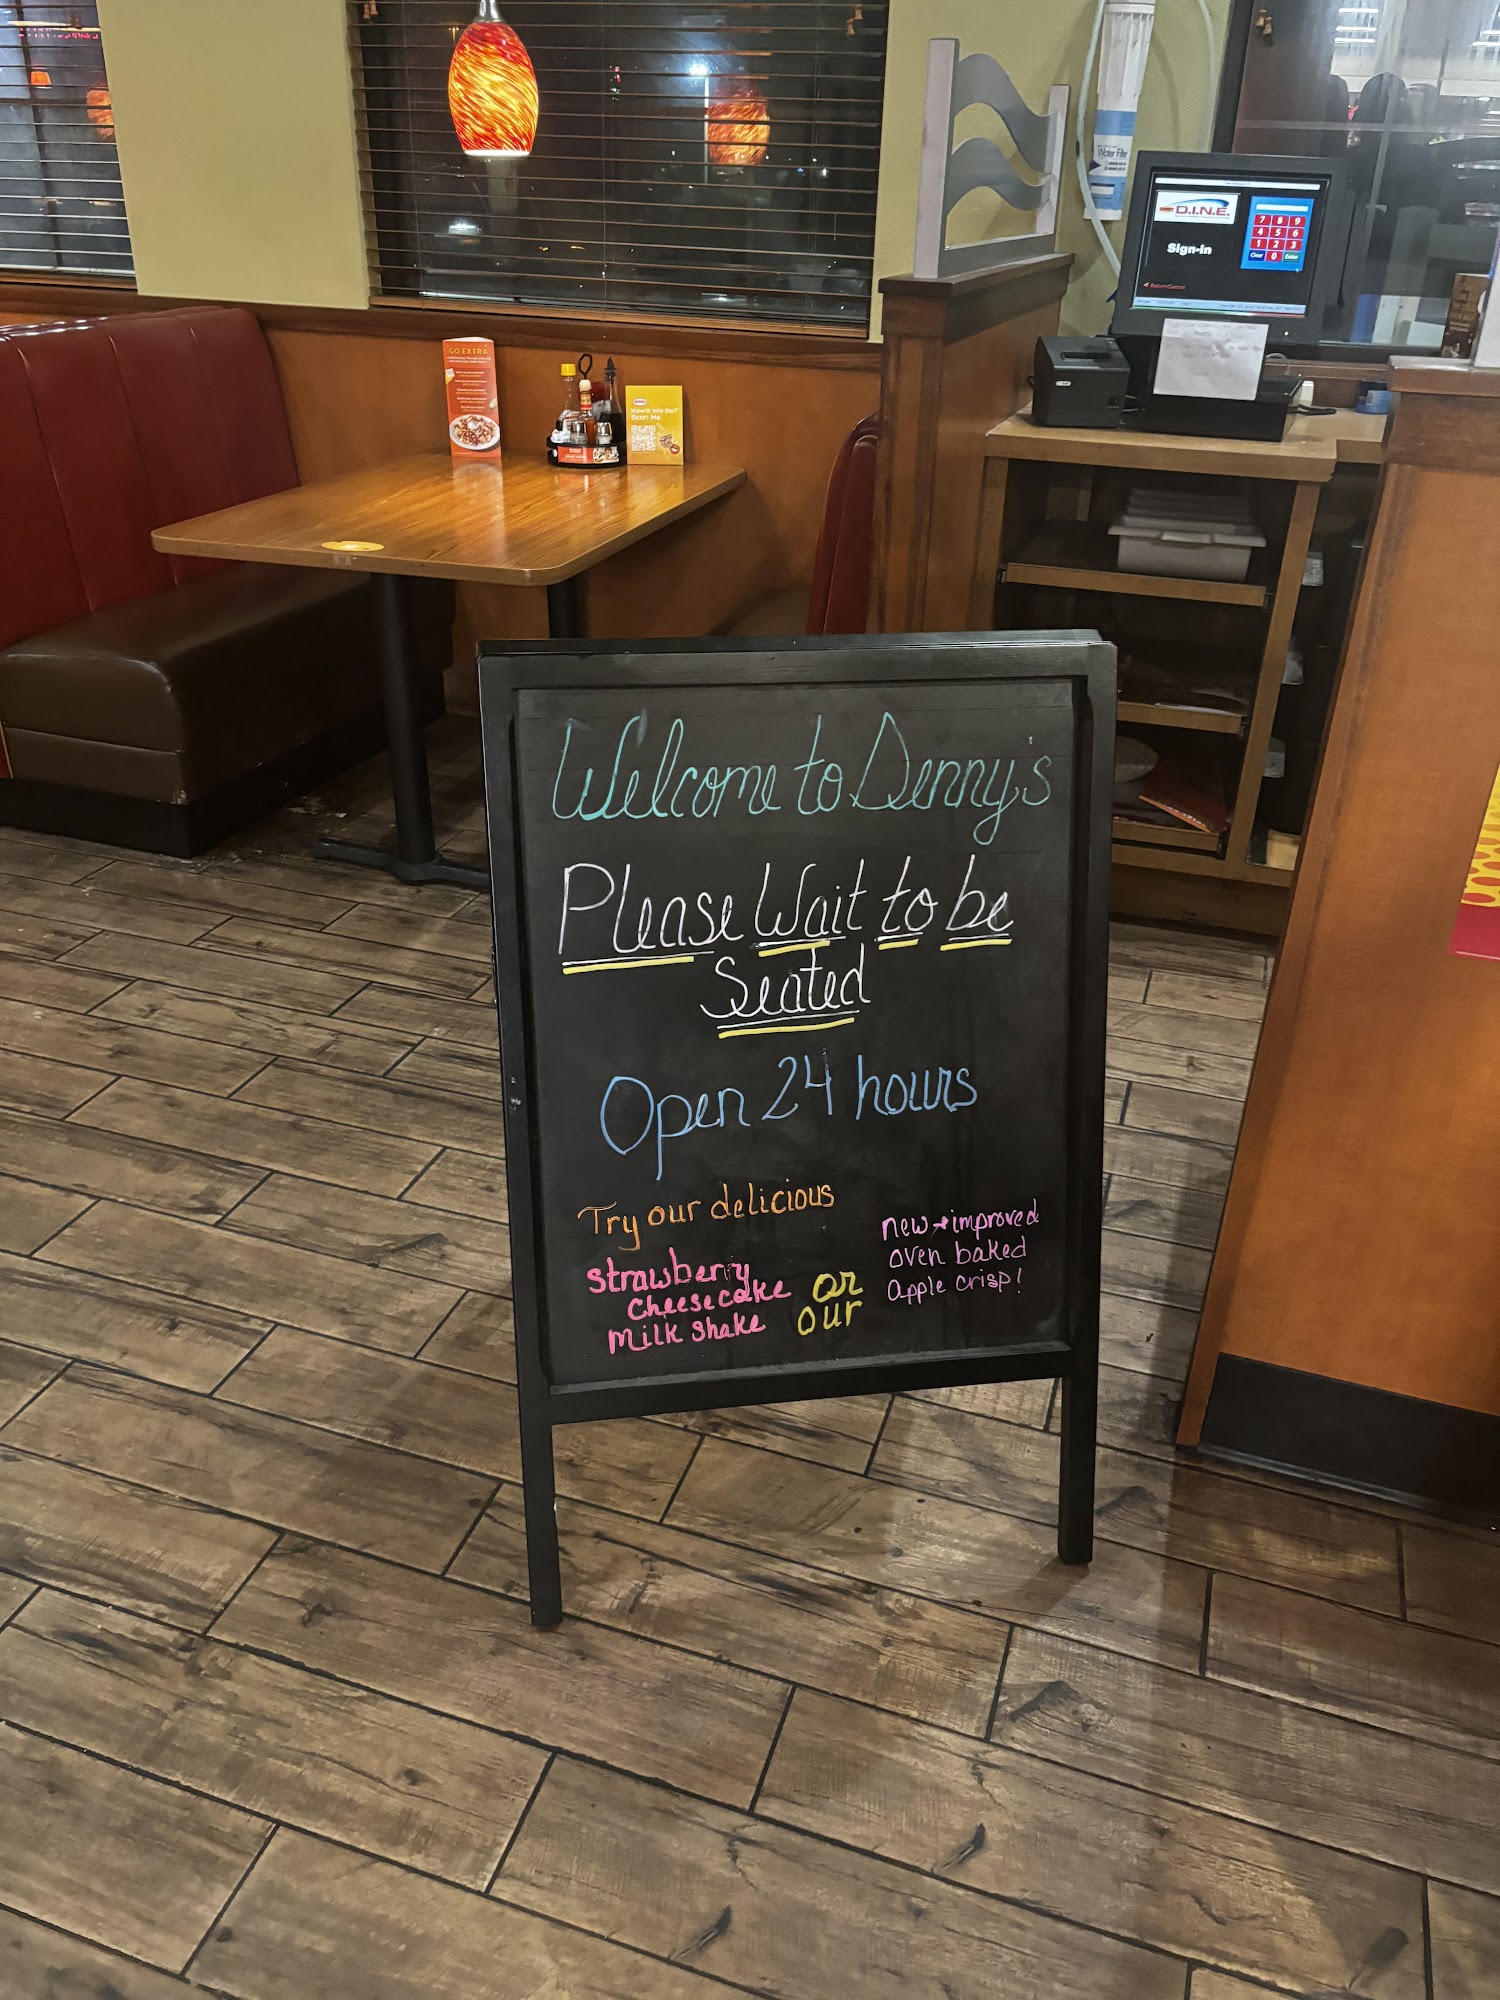 GO EXTRA
Denny's
How'd We Do?
Scan Me
Water Filter
D.I.N.E.
Sign-in
7 8 9
4 5 6
1 2 3
Clear 0 Enter
Welcome to Denny's
Please Wait to be
Seated
Open 24 hours
Try our delicious
strawberry
cheesecake
milk shake
or
our
new + improved
oven baked
apple crisp!